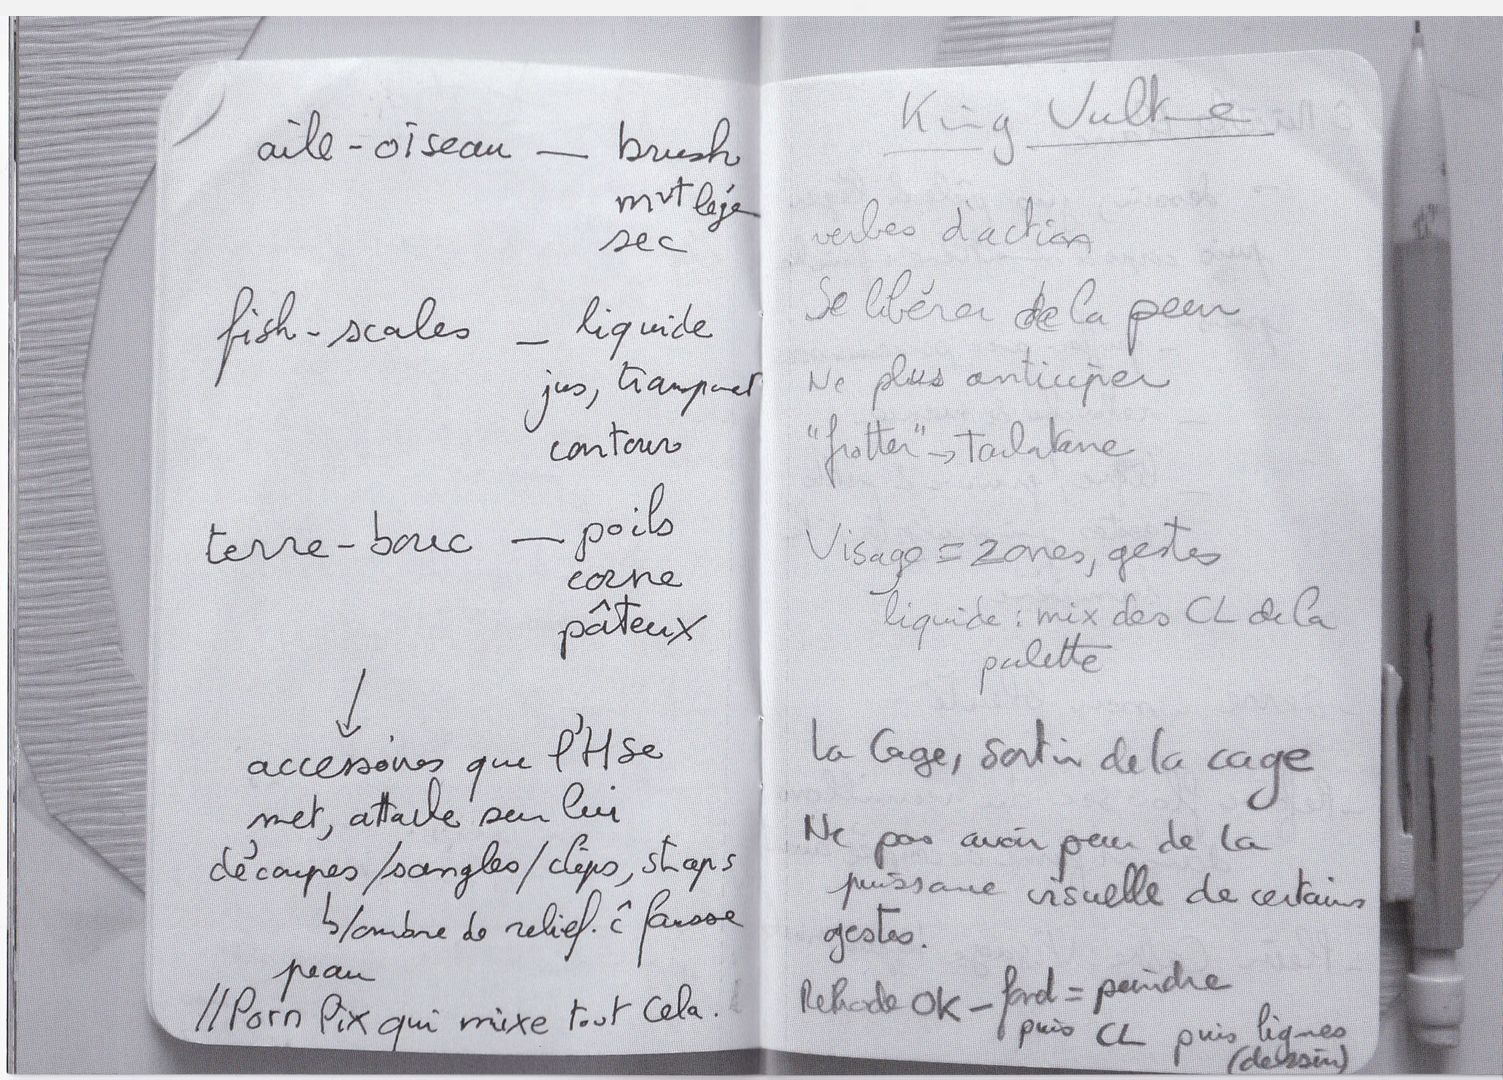 aile-oiseau — brush
mvt légé
sec
fish-scales — liquide
jus, transparent
contour
terre-bouc — poils
corne
pâteux
accessoires que l'H se
met, attache sur lui
découpes/sangles/clips, straps
↳/ombre de relief. ĉ fausse
peau
//Porn Pix qui mixe tout cela.
King Vulture
verbes d'action
Se libérer de la peur
Ne plus anticiper
"frotter" → tarlatane
Visage = zones, gestes
liquide : mix des CL de la
palette
la Cage, sortir de la cage
Ne pas avoir peur de la
puissance visuelle de certains
gestes.
OK – fond = peindre
puis CL puis lignes
(dessin)